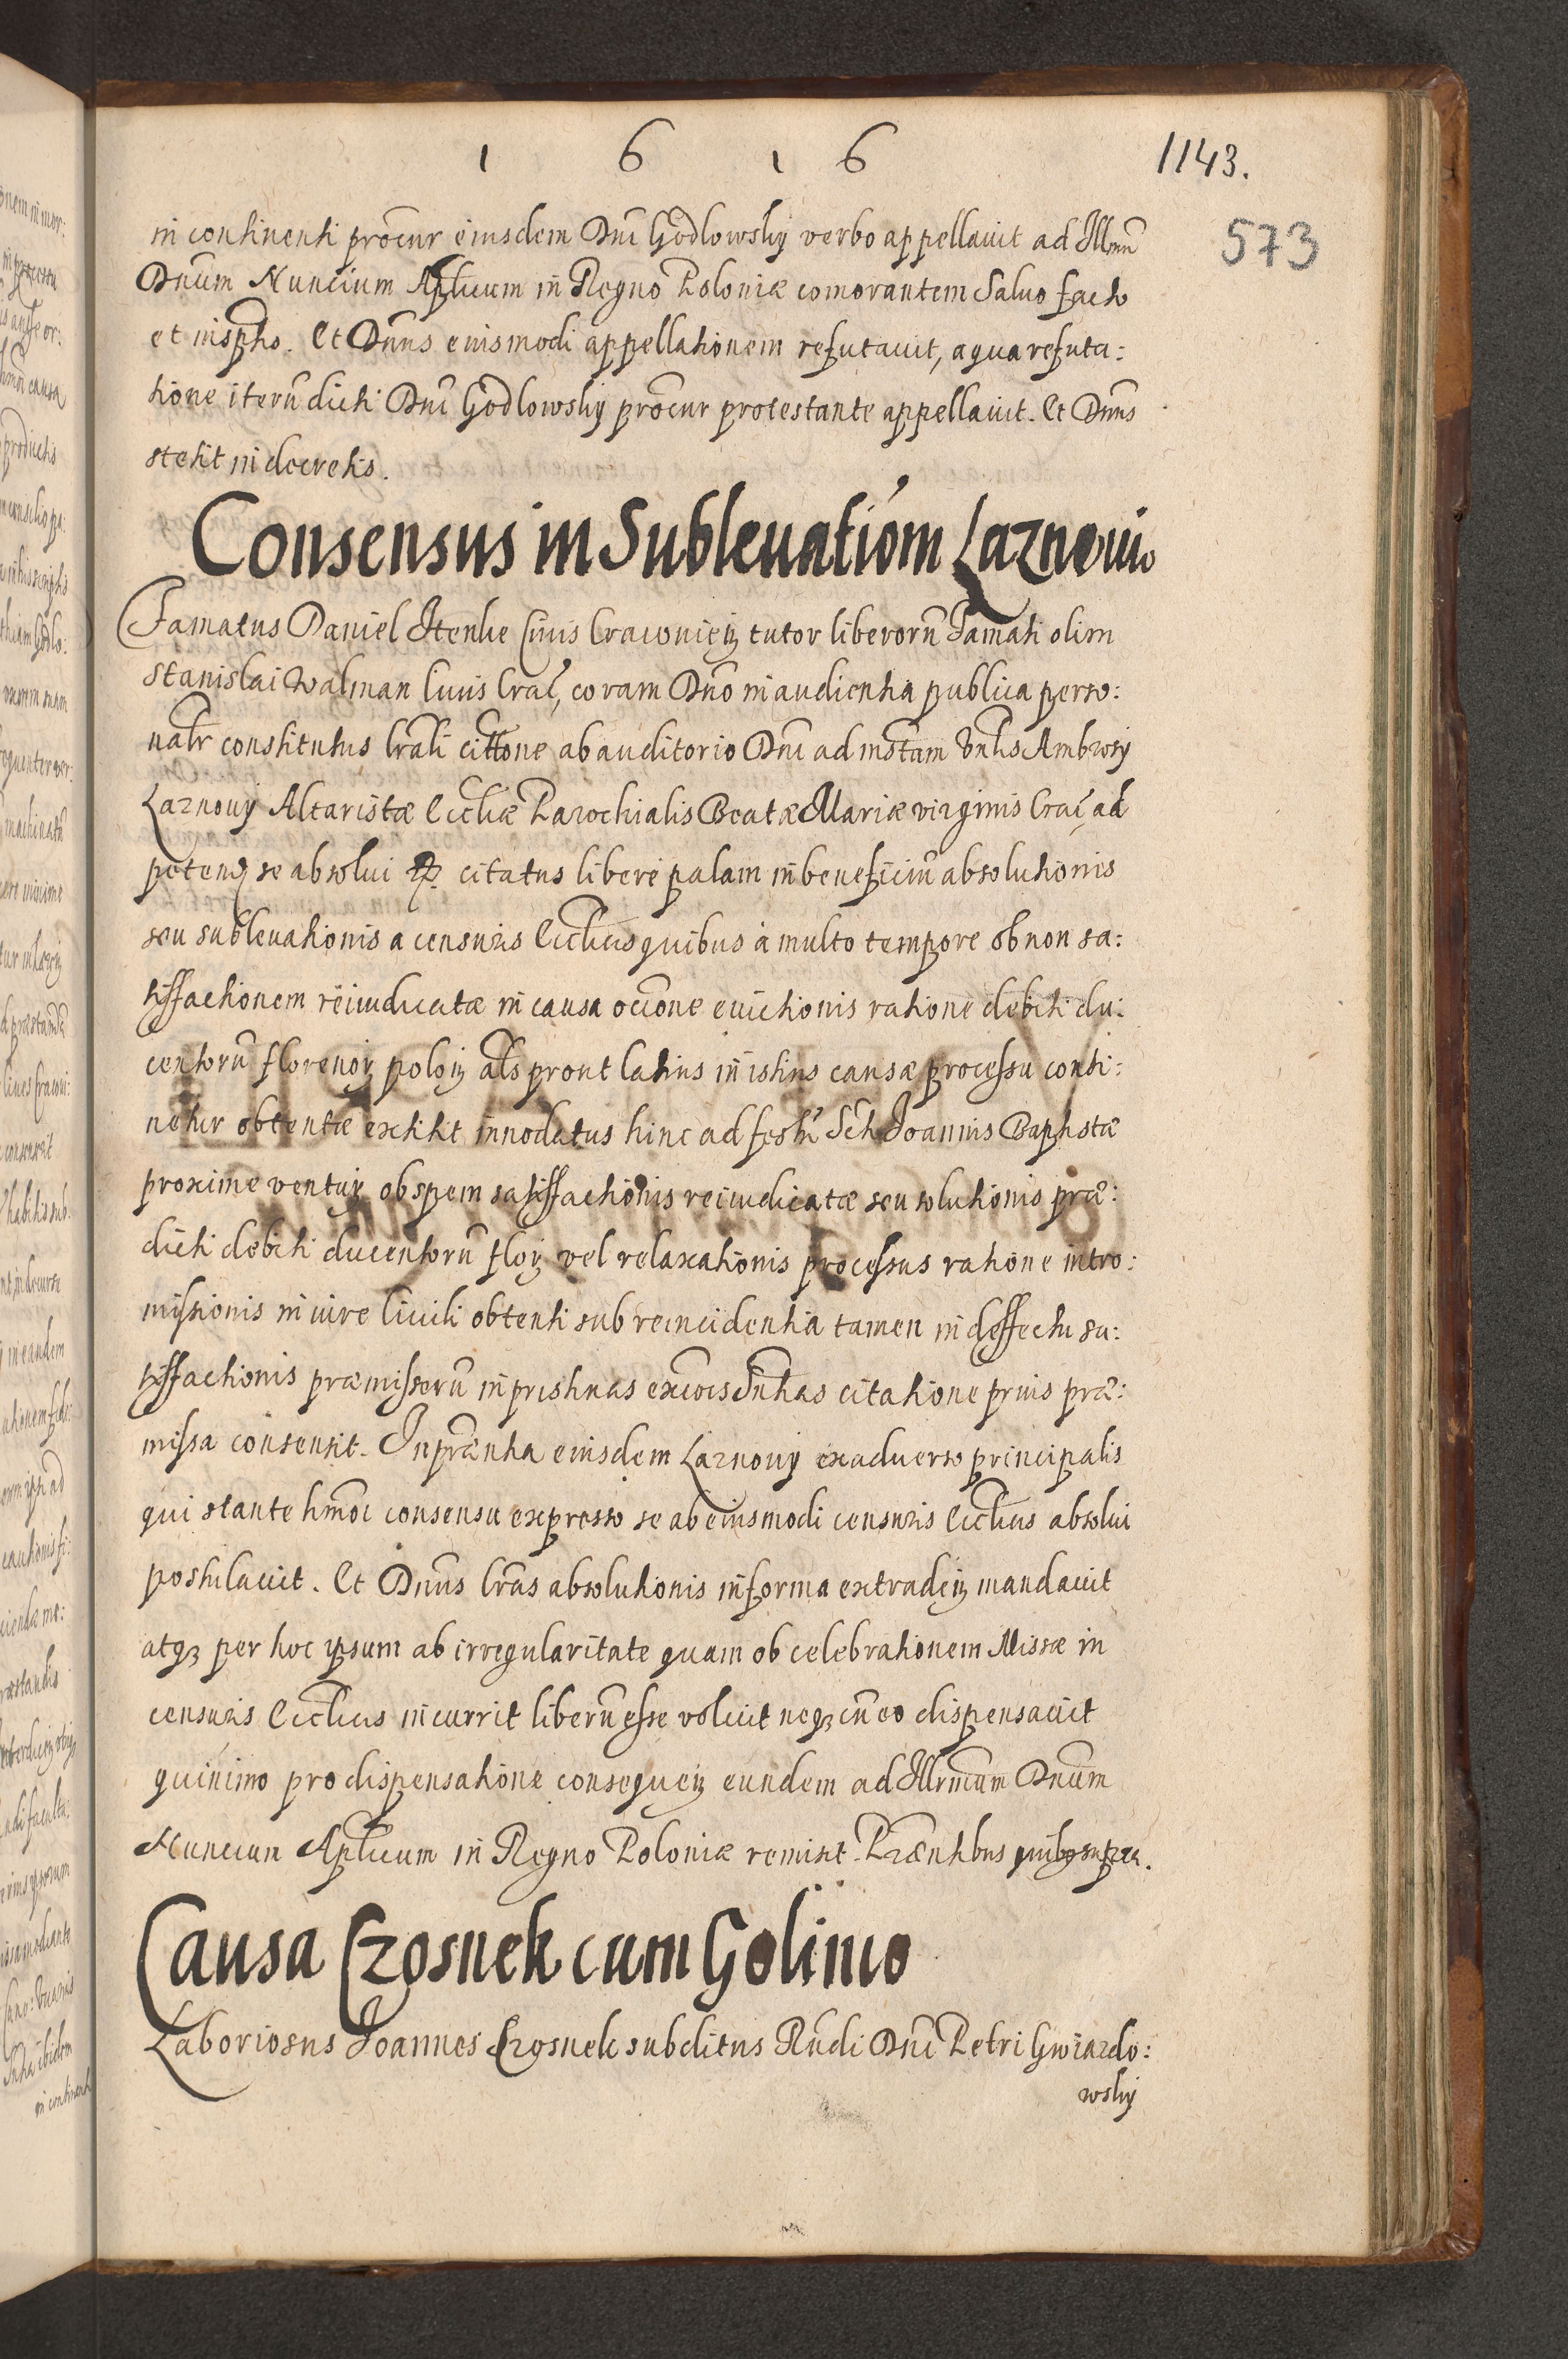 1 6 1 6
1143.
573
in continenti procur eiusdem Dni Godlowsky verbo appellavit ad Illmũ
Dnum Nuncium Aplicum in Regno Poloniæ comorantem Salvo facto
et inscpto. Et Dnus eiusmodi appellationem refutavit, a qua refuta:
tione iterũ dicti Dni Godlowsky procur protestante appellavit. Et Dnus
stetit in decretis.
Consensus in Sublevatiom Laznowio
Famatus Daniel Henke Civis Cracovieñ tutor liberorũ Famati olim
Stanislai Walman Civis Crac, coram Dno in audientia publica perso:
nalr constitutus lrali cittone ab auditorio Dni ad instam Vnlis Ambrosy
Laznowy Altaristæ Ecclîæ Parochialis Beatæ Mariæ virginis Crac ad
petend se absolvi citatus libere palam in beneficiũ absolutionis
seu sublevationis a censuris Ecclîcis quibus à multo tempore ob non sa:
tisfactionem reiiudicatæ in causa occõne evictionis ratione debiti du:
centorũ florenoȝ poloȝ als prout latius in istius causæ processu conti:
netur obtentæ extitit innodatus hinc ad festũ Scti Joannis Baptistæ
proxime venturȝ ob spem satisfactionis reiudicatæ seu solutionis præ:
dicti debiti ducentorũ floȝ vel relaxationis processus ratione intro:
missionis in iure Civili obtenti sub reincidentia tamen in deffectu sa:
tisfactionis præmissorũ in pristinas excõis Sntias citatione prius præ:
missa consensit. In præntia eiusdem Laznowy ex adverso principalis
qui stante hmõi consensu expresso se ab eiusmodi censuris Ecclîcis absolvi
postulavit. Et Dnus lras absolutionis in forma extradeȝ mandavit
atqȝ per hoc ipsum ab irregularitate quam ob celebrationem Missæ in
censuris Ecclîcis incurrit liberũ esse voluit neqȝ cũ eo dispensavit
quinimo pro dispensatione consequeȝ eundem ad Illrmum Dnum
Nuncium Aplicum in Regno Poloniæ remisit. Præntibus quibus supra.
Causa Czosnek cum Golinio
Laboriosus Joannes Czosnek subditus Rñdi Dni Petri Gwiazdo:
wsky